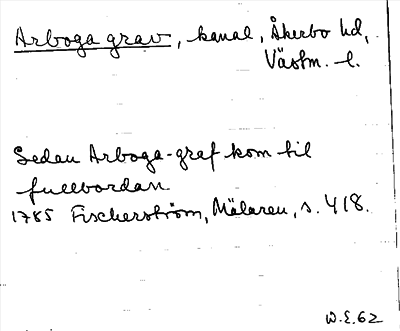 Arboga grav, kanal, Åkerbo hd,
Västm. l.
Sedan Arboga-graf kom til
fullbordan
1785 Fischerström, Mälaren, s. 418.
W.E. 62